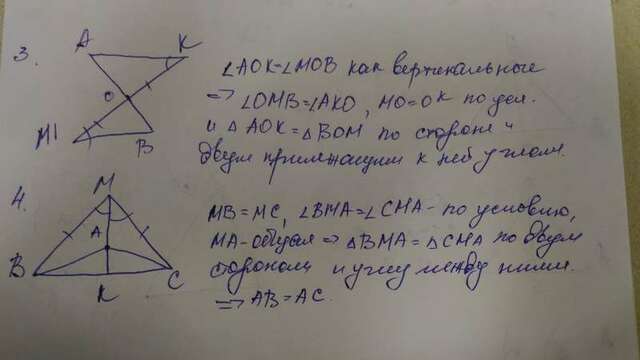 3.
A K
O
M B
∠AOK=∠MOB как вертикальные
=> ∠OMB=∠AKO, MO=OK по усл.
и △AOK=△BOM по стороне и
двум прилежащим к ней углам.
4.
M
A
B K C
MB=MC, ∠BMA=∠CMA - по условию,
MA-общая => △BMA=△CMA по двум
сторонам и углу между ними.
=> AB=AC.